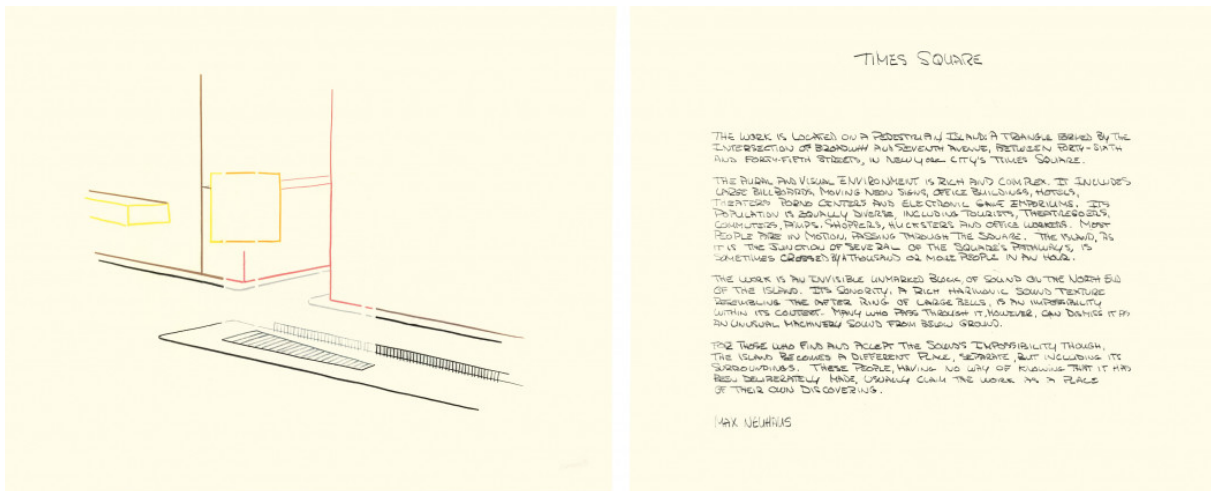 TIMES SQUARE
THE WORK IS LOCATED ON A PEDESTRIAN ISLAND: A TRIANGLE FORMED BY THE
INTERSECTION OF BROADWAY AND SEVENTH AVENUE, BETWEEN FORTY-SIXTH
AND FORTY-FIFTH STREETS, IN NEW YORK CITY'S TIMES SQUARE.
THE AURAL AND VISUAL ENVIRONMENT IS RICH AND COMPLEX. IT INCLUDES
LARGE BILLBOARDS, MOVING NEON SIGNS, OFFICE BUILDINGS, HOTELS,
THEATERS, PORNO CENTERS AND ELECTRONIC GAME EMPORIUMS. ITS
POPULATION IS EQUALLY DIVERSE, INCLUDING TOURISTS, THEATREGOERS,
COMMUTERS, PIMPS, SHOPPERS, HUCKSTERS AND OFFICE WORKERS. MOST
PEOPLE ARE IN MOTION, PASSING THROUGH THE SQUARE. THE ISLAND, AS
IT IS THE JUNCTION OF SEVERAL OF THE SQUARE'S PATHWAYS, IS
SOMETIMES CROSSED BY A THOUSAND OR MORE PEOPLE IN AN HOUR.
THE WORK IS AN INVISIBLE UNMARKED BLOCK OF SOUND ON THE NORTH END
OF THE ISLAND. ITS SONORITY, A RICH HARMONIC SOUND TEXTURE
RESEMBLING THE AFTER RING OF LARGE BELLS, IS AN IMPOSSIBILITY
WITHIN ITS CONTEXT. MANY WHO PASS THROUGH IT, HOWEVER, CAN DISMISS IT AS
AN UNUSUAL MACHINERY SOUND FROM BELOW GROUND.
FOR THOSE WHO FIND AND ACCEPT THE SOUND'S IMPOSSIBILITY THOUGH,
THE ISLAND BECOMES A DIFFERENT PLACE, SEPARATE, BUT INCLUDING ITS
SURROUNDINGS. THESE PEOPLE, HAVING NO WAY OF KNOWING THAT IT HAS
BEEN DELIBERATELY MADE, USUALLY CLAIM THE WORK AS A PLACE
OF THEIR OWN DISCOVERING.
MAX NEUHAUS